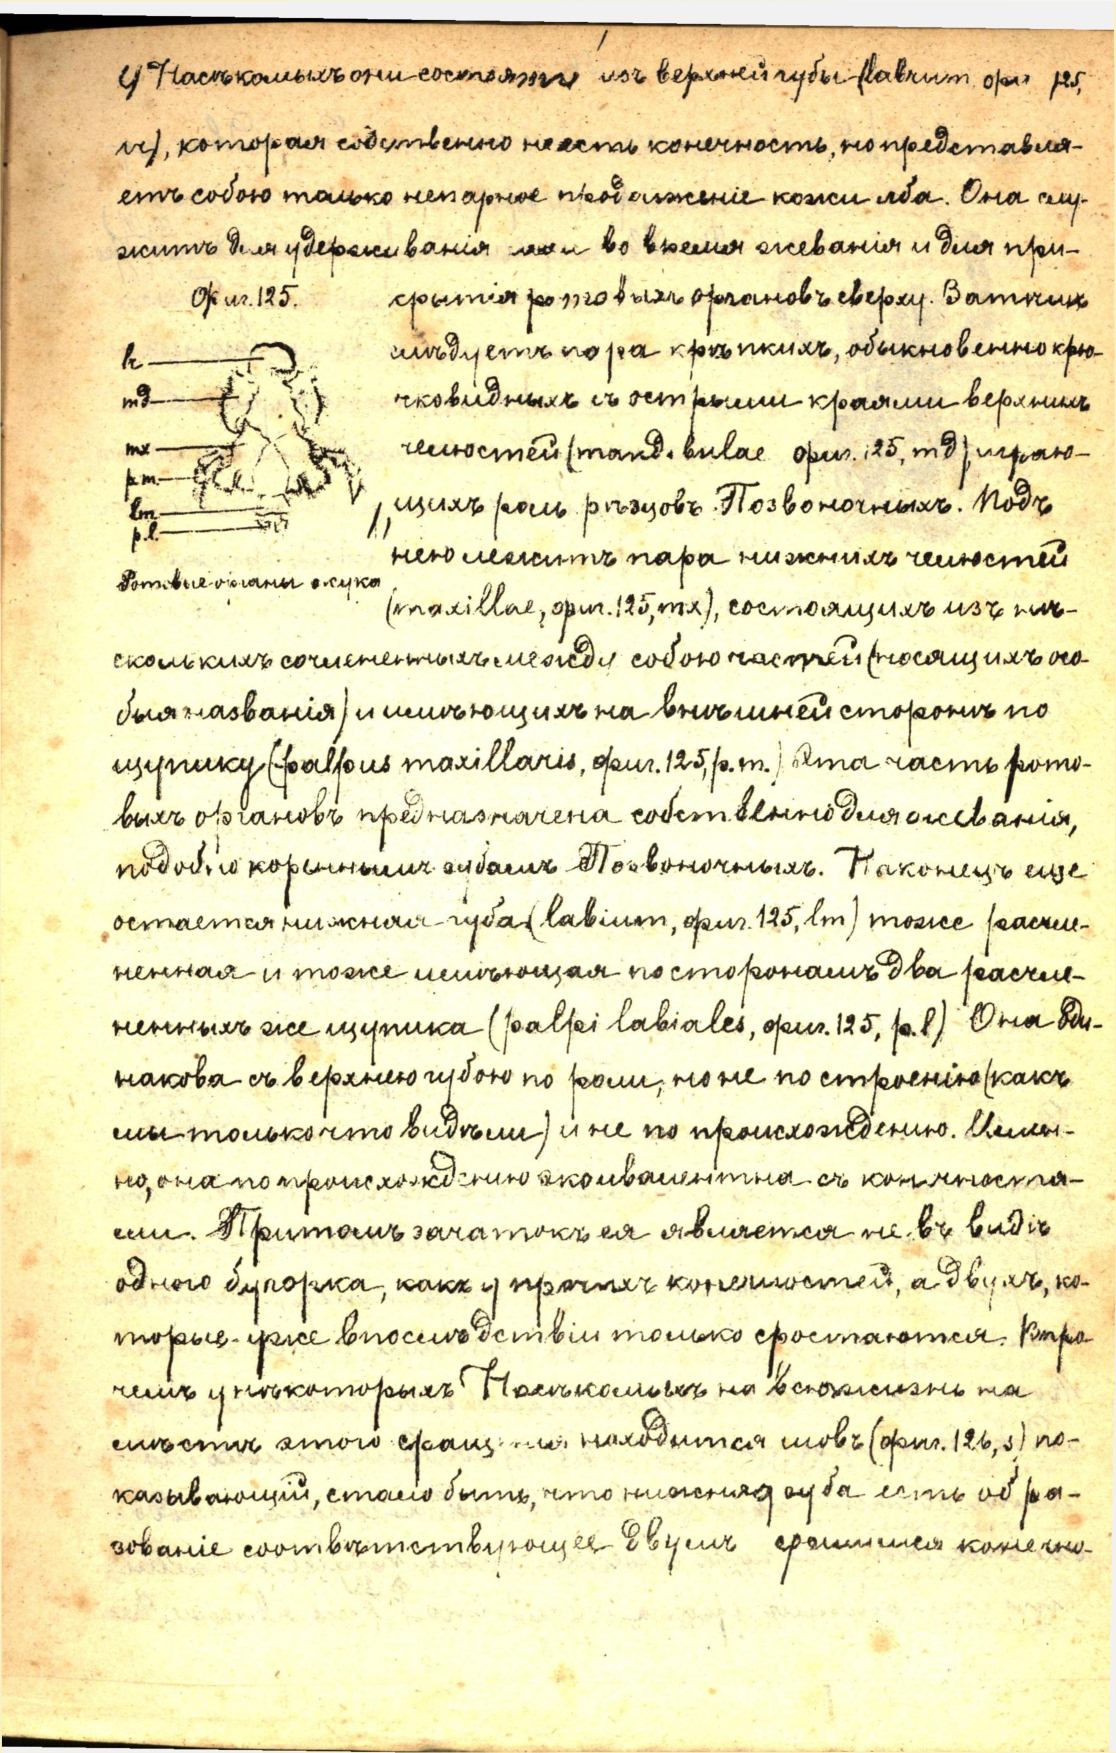 У Насѣкомыхъ они состоятъ изъ верхней губы (labrum фиг 125,
lr), которая собственно не есть конечность, но представля-
етъ собою только непарное продолженіе кожи лба. Она слу-
житъ для удерживанія пищи во время жеванія и для при-
Фиг. 125.
крытія ротовыхъ органовъ сверху. Затѣмъ
слѣдуетъ пара крѣпкихъ, обыкновенно крю-
чковидныхъ съ острыми краями верхнихъ
челюстей (mandibulae фиг. 125, md), играю-
щихъ роль рѣзцовъ Позвоночныхъ. Подъ
нею лежитъ пара нижнихъ челюстей
(maxillae, фиг. 125, mx), состоящихъ изъ нѣ-
lr
md
mx
p.m
lm
p.l
Ротовые органы жука
сколькихъ сочлененныхъ между собою частей (носящихъ осо-
быя названія) и имѣющихъ на внѣшней сторонѣ по
щупику (palpus maxillaris, фиг. 125, p.m.) Эта часть рото-
выхъ органовъ предназначена собственно для жеванія,
подобно кореннымъ зубамъ Позвоночныхъ. Наконецъ еще
остается нижняя губа (labium, фиг. 125, lm) тоже расчле-
ненная и тоже имѣющая по сторонамъ два расчле-
ненныхъ же щупика (palpi labiales, фиг. 125, p.l) Она оди-
накова съ верхнею губою по роли, но не по строенію (какъ
мы только что видѣли) и не по происхожденію. Имен-
но, она по происхожденію эквивалентна съ конечностя-
ми. Притомъ зачатокъ ея является не въ видѣ
одного бугорка, какъ у прочихъ конечностей, а двухъ, ко-
торые уже впослѣдствіи только сростаются. Впро-
чемъ у нѣкоторыхъ Насѣкомыхъ на всю жизнь на
мѣстѣ этого сращенія находится шовъ (фиг. 126, s) по-
казывающій, стало быть, что нижняя губа есть обра-
зованіе соотвѣтствующее двумъ сросшимся конечно-